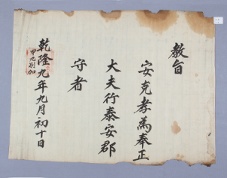 教旨
安克孝為奉正
大夫行泰安郡
守者
乾隆九年九月初十日